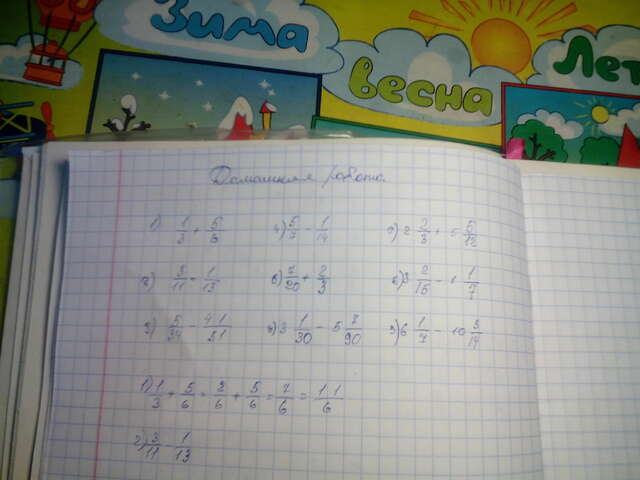 Зима
весна
Лет
Домашняя работа.
1) 1/3 + 5/6 4) 5/7 - 1/14 2 2/3 + 5 5/12
2) 3/11 - 1/13 7/20 + 2/3 3 2/15 - 1 1/7
3) 5/34 - 3 1/30 - 5 7/90 6 1/7 - 10 3/14
1) 1/3 + 5/6 = 2/6 + 5/6 = 7/6 = 1 1/6
2) 3/11 - 1/13